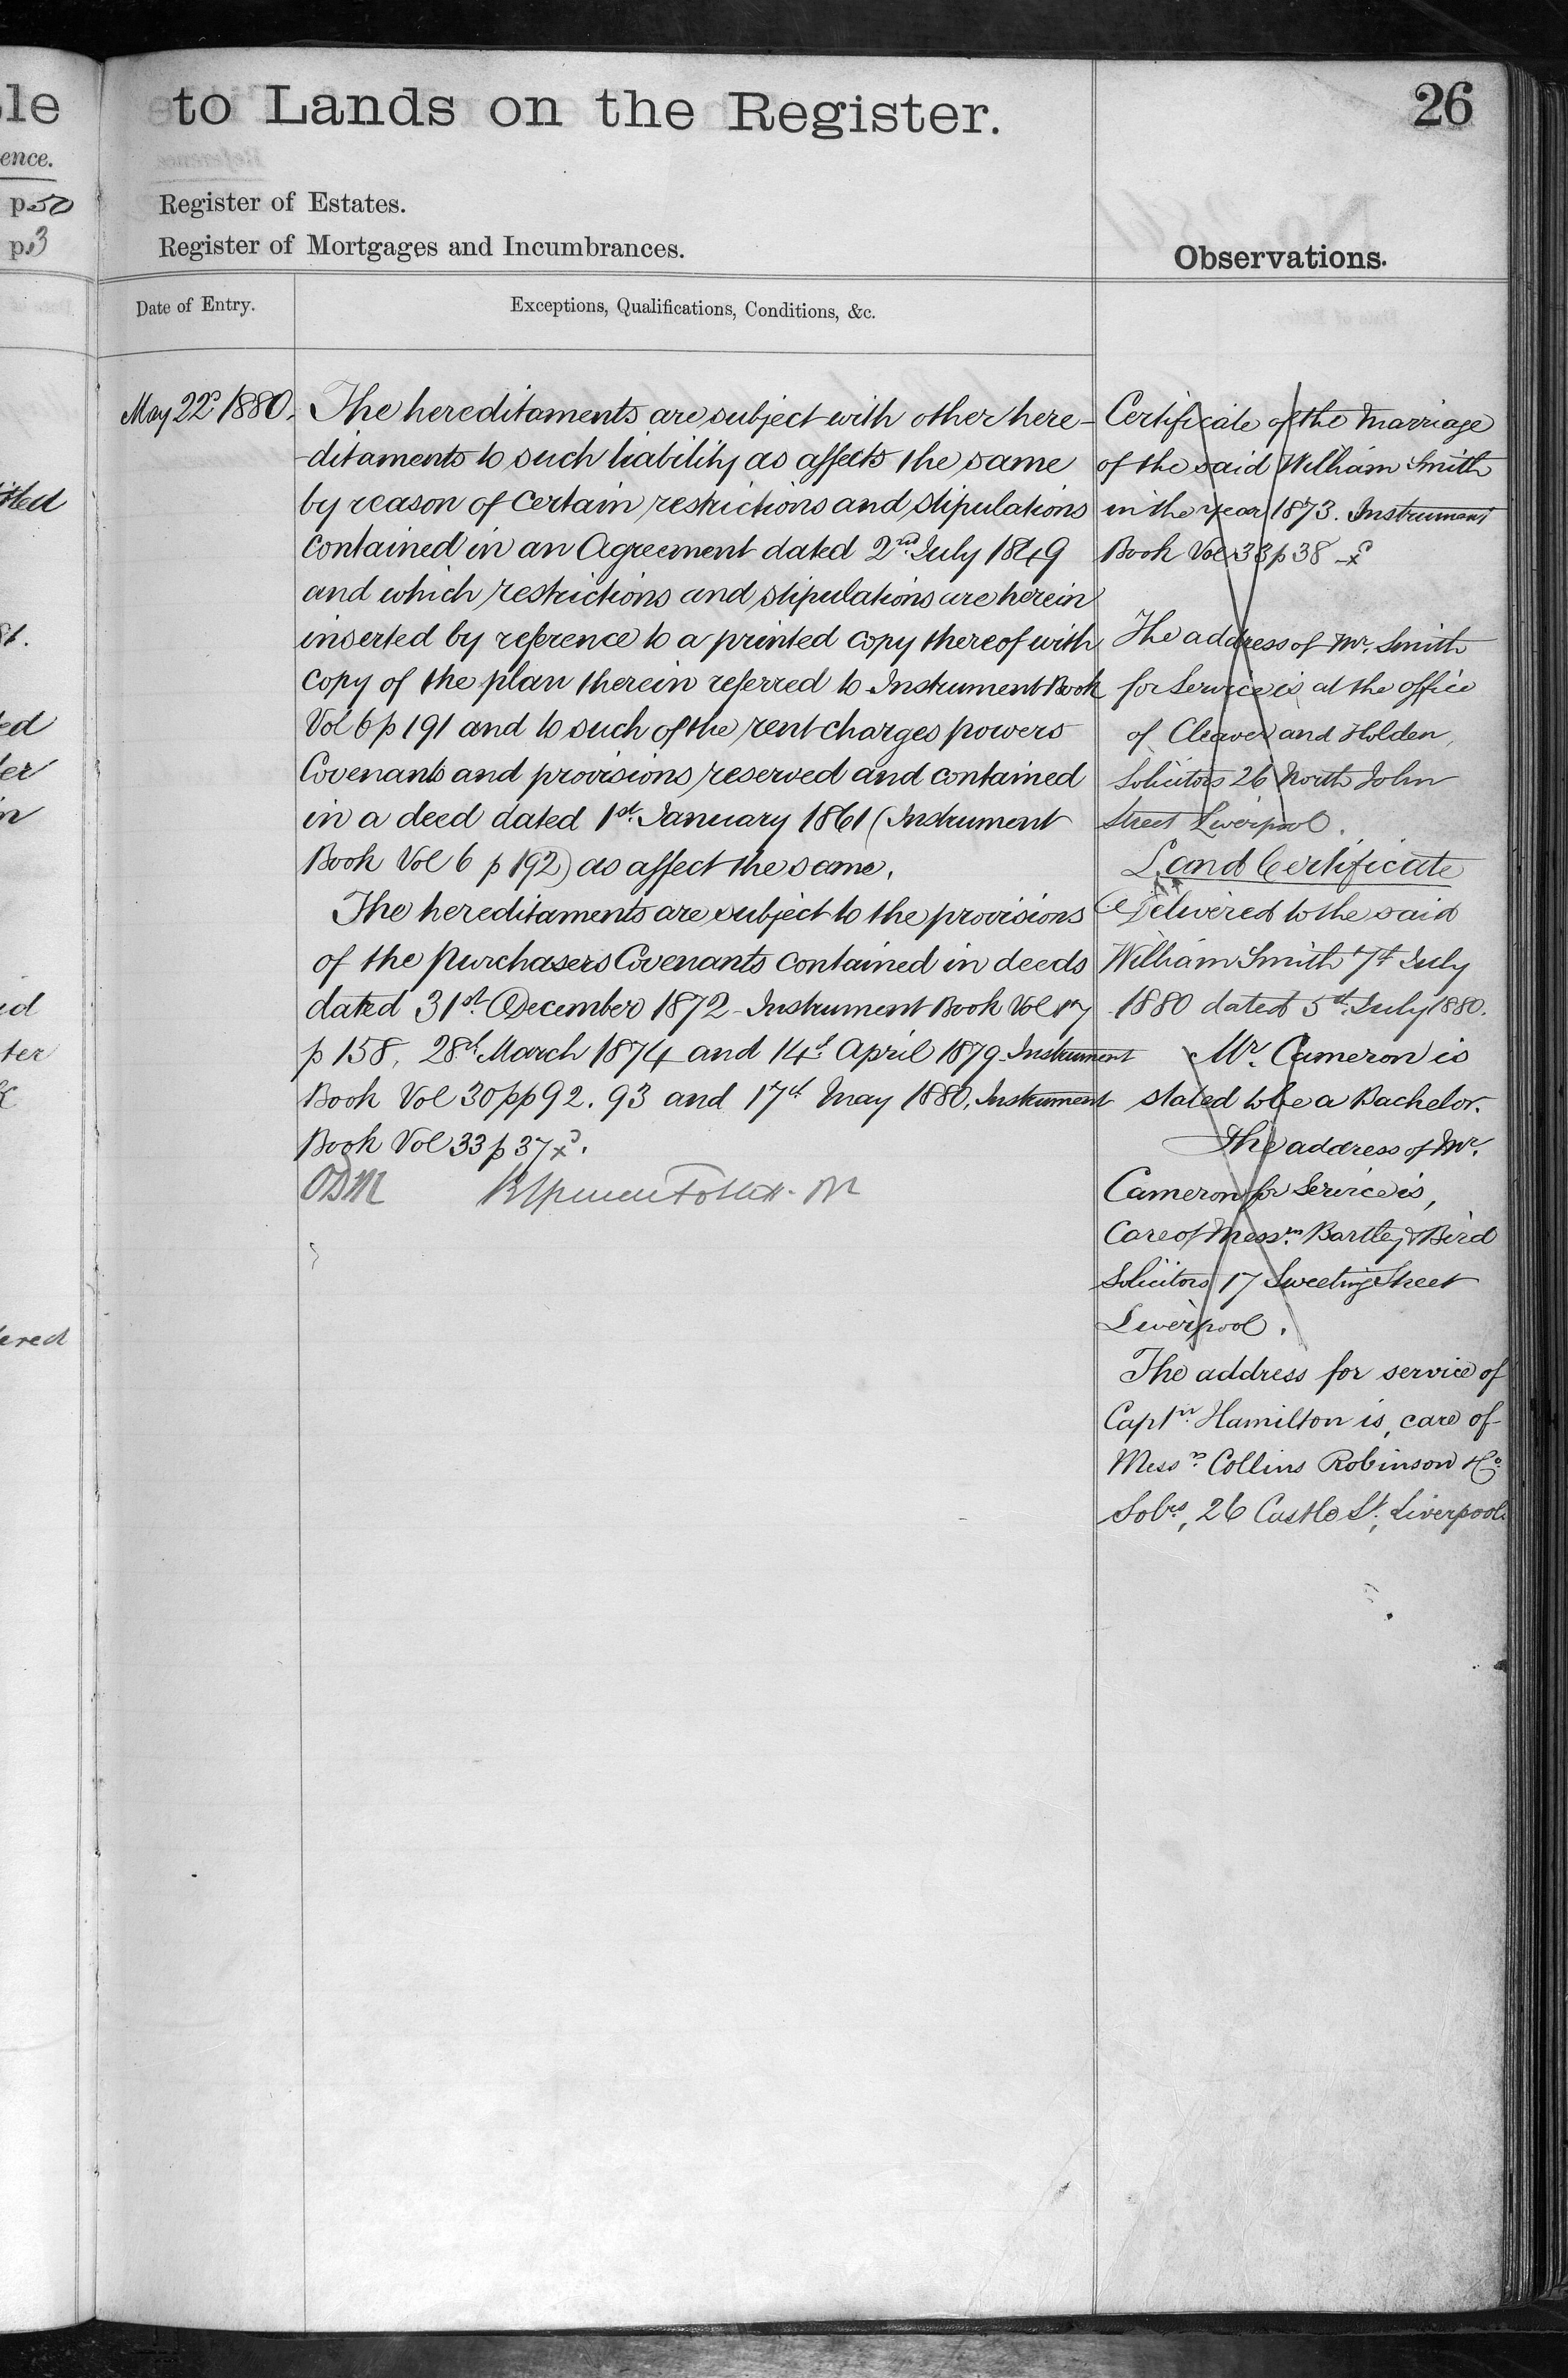 le
ence.
p 50
p. 3
to Lands on the Register.
26
Register of Estates.
Register of Mortgages and Incumbrances.
Observations.
Date of Entry.
Exceptions, Qualifications, Conditions, &c.
May 22d 1880.
The hereditaments are subject with other here-
-ditaments to such liability as affects the same
by reason of certain restrictions and stipulations
contained in an Agreement dated 2nd July 1849
and which restrictions and stipulations are herein
inserted by reference to a printed copy thereof with
copy of the plan therein referred to Instrument Book
Vol 6 p 191 and to such of the rent charges powers
Covenants and provisions reserved and contained
in a deed dated 1st January 1861 (Instrument
Book Vol 6 p 192) as affect the same.
The hereditaments are subject to the provisions
of the purchasers Covenants contained in deeds
dated 31st December 1872 Instrument Book Vol 17
p 158, 28th March 1874 and 14th April 1879 Instrument
Book Vol 30 pp 92. 93 and 17th May 1880, Instrument
Book Vol 33 p 37
Certificate of the Marriage
of the said William Smith
in the year 1873. Instrument
Book Vol 33 p 38
The address of Mr. Smith
for Service is at the office
of Cleaver and Holden,
Solicitors 26 North John
Street Liverpool.
Land Certificate
Delivered to the said
William Smith 7th July
1880 dated 5th July 1880.
Mr. Cameron is
stated to be a Bachelor.
The address of Mr.
Cameron for Service is,
Care of Messrs. Bartley & Bird
Solicitors 17 Sweeting Street
Liverpool.
The address for service of
Captn. Hamilton is, care of
Messrs. Collins Robinson & Co.
Solrs, 26 Castle St, Liverpool.